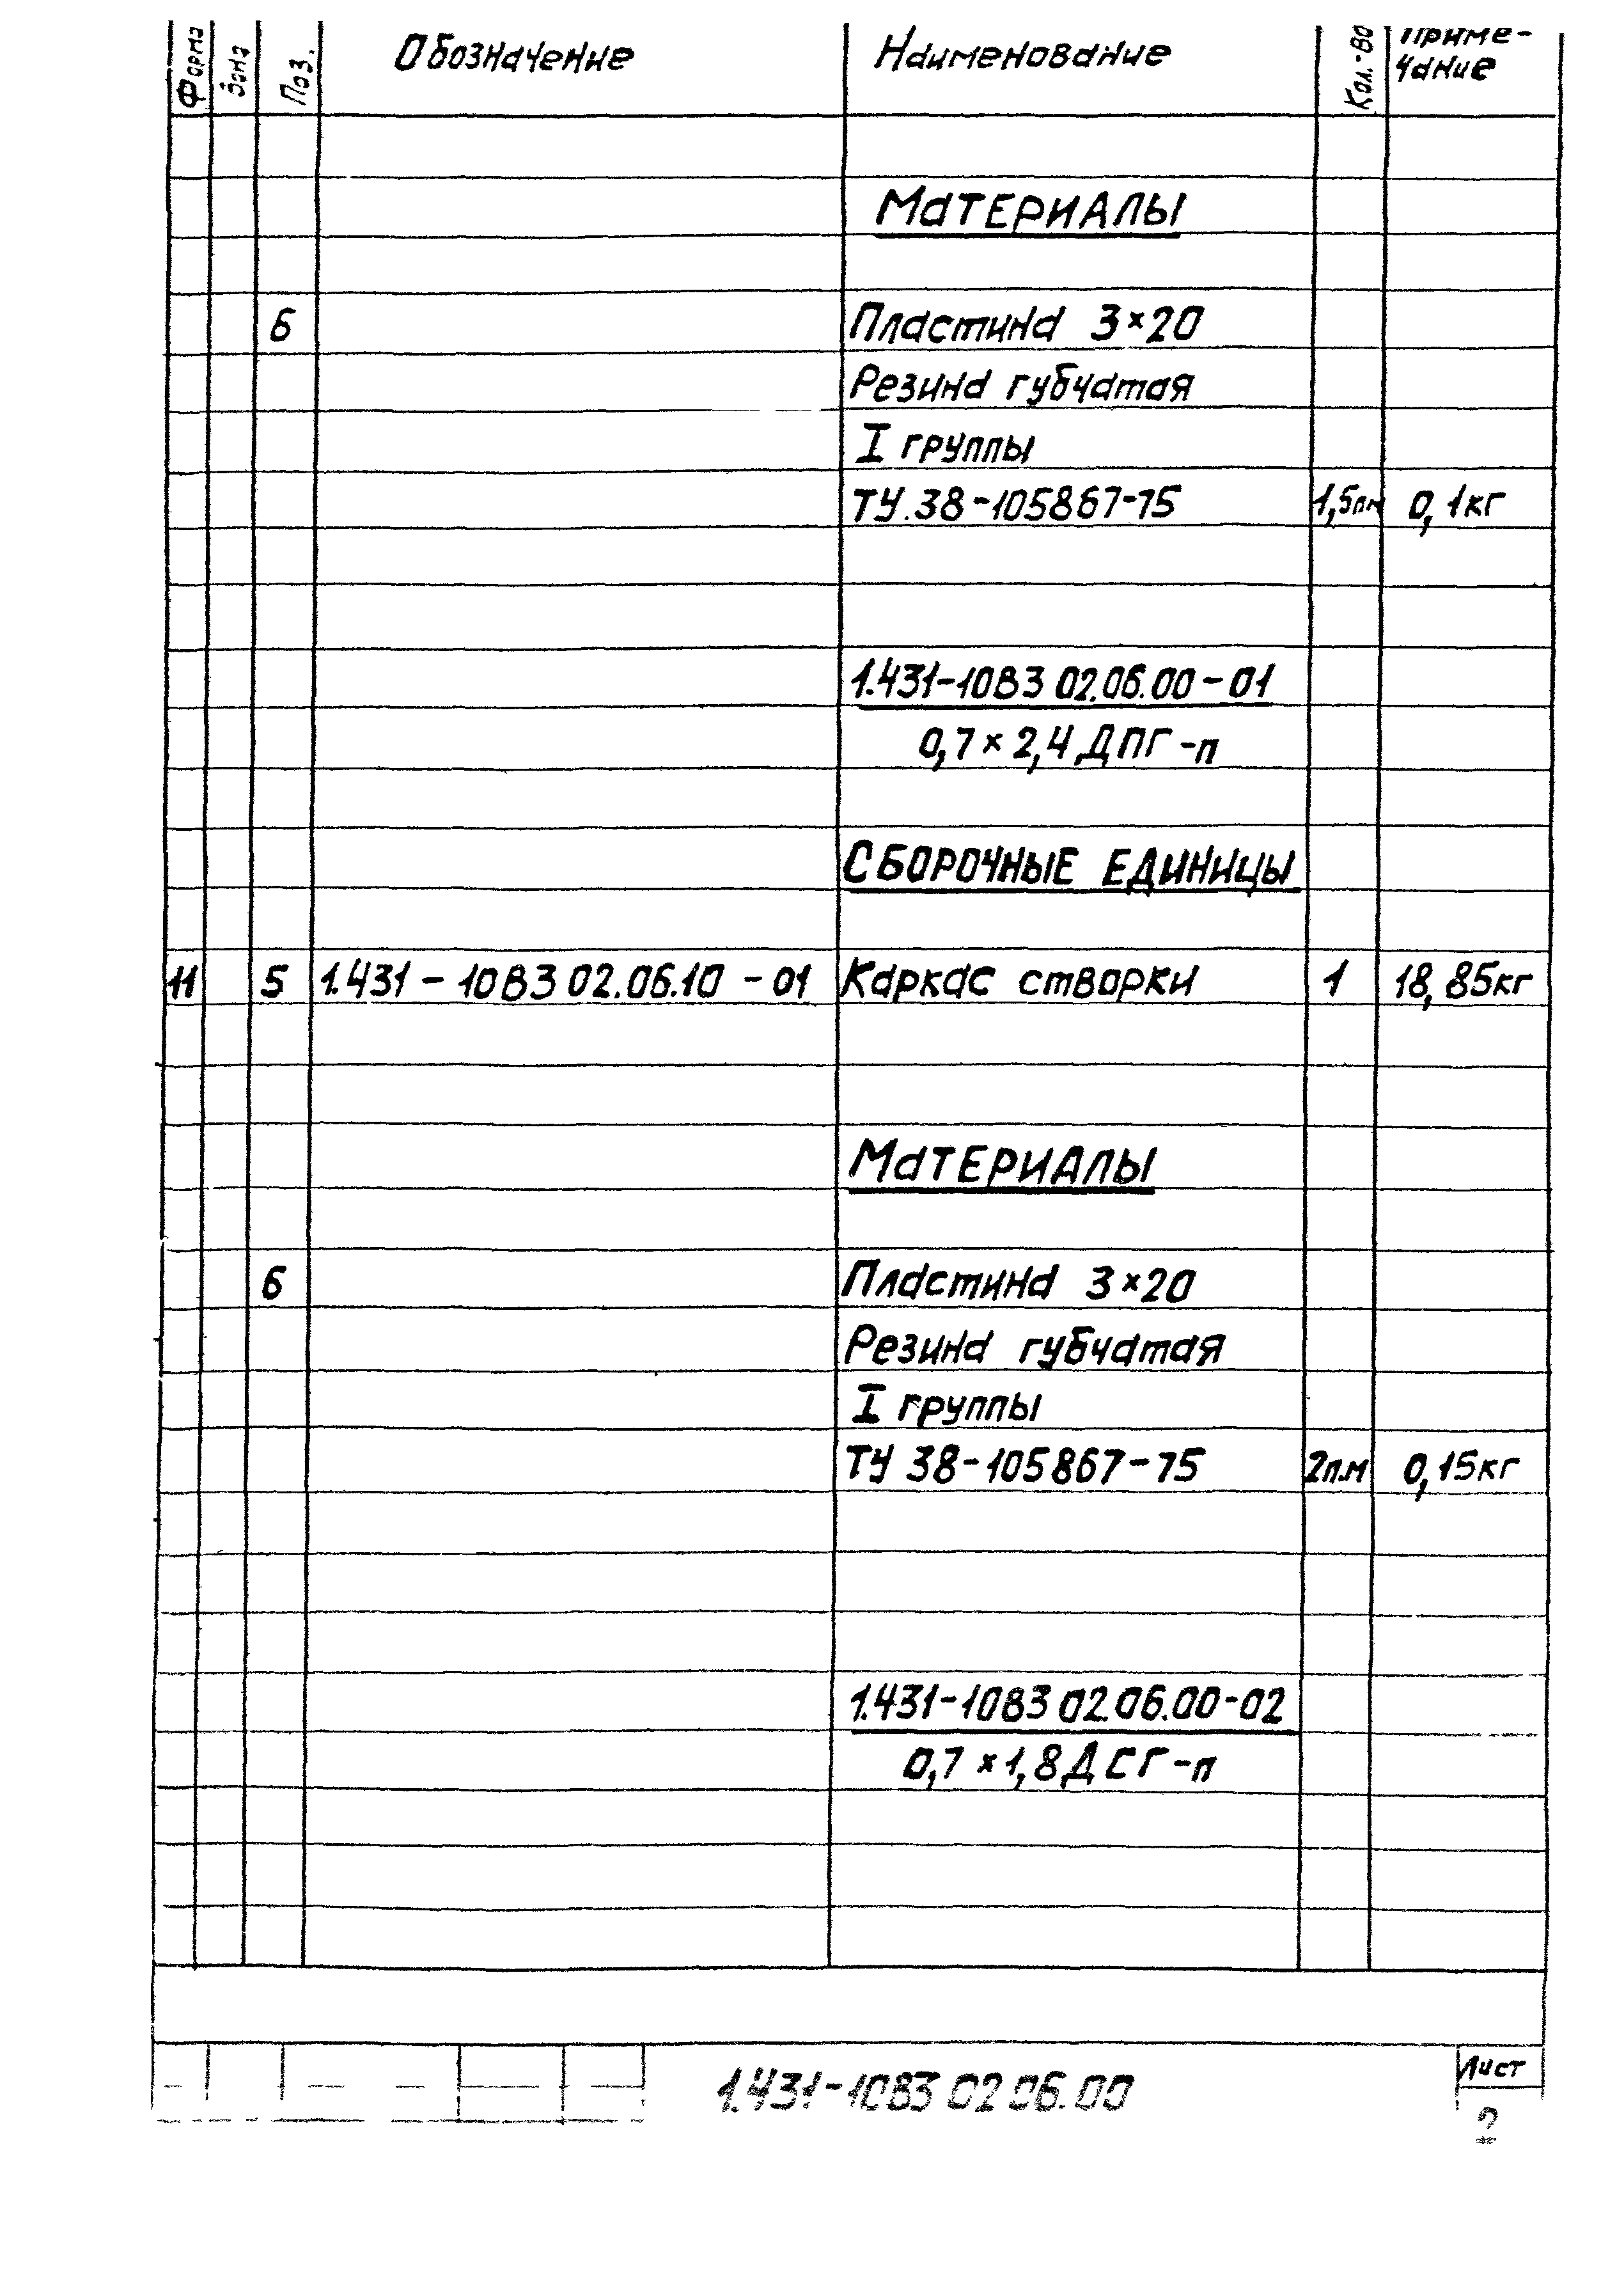 Форма Зона Поз. Обозначение Наименование Кол.-во Приме-
чание
МАТЕРИАЛЫ
6 Пластина 3×20
Резина губчатая
I группы
ТУ.38-105867-75 1,5пм 0,1кг
1.431-10В3 02.06.00-01
0,7×2,4 ДПГ-п
СБОРОЧНЫЕ ЕДИНИЦЫ
11 5 1.431-10В3 02.06.10-01 Каркас створки 1 18,85кг
МАТЕРИАЛЫ
6 Пластина 3×20
Резина губчатая
I группы
ТУ 38-105867-75 2п.м 0,15кг
1.431-10В3 02.06.00-02
0,7×1,8 ДСГ-п
1.431-10В3 02 06.00 Лист
2